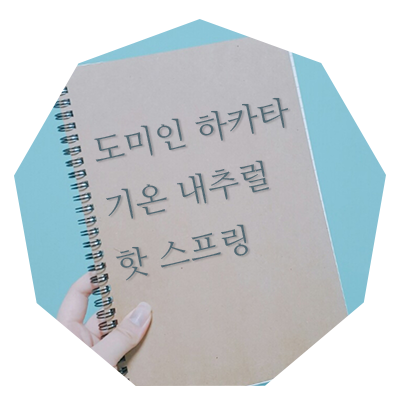 도미인 하카타
기온 내추럴
핫 스프링